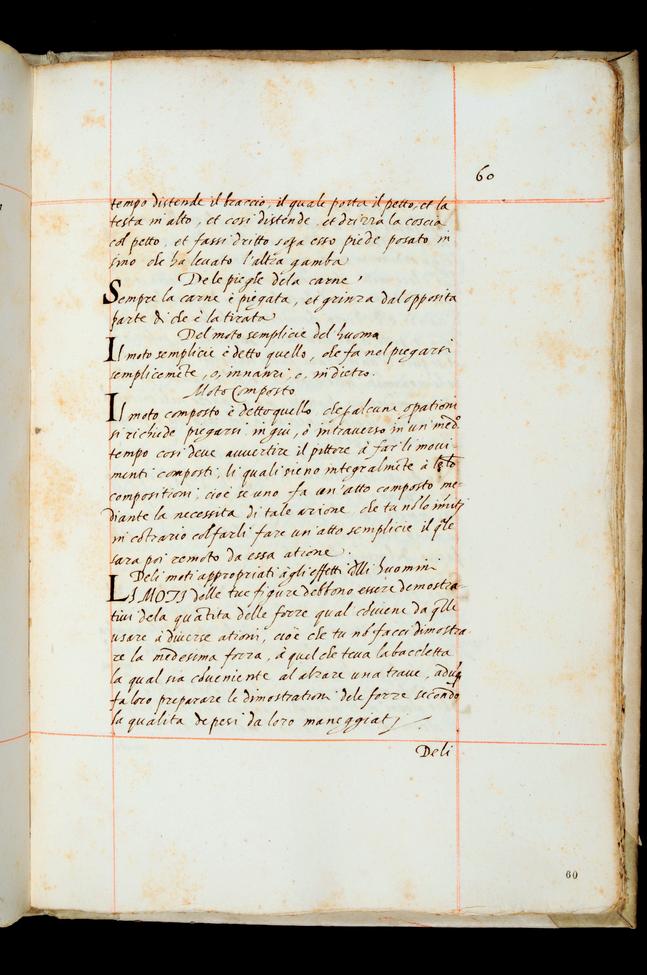 60
tempo distende il braccio, il quale porta il petto, et la
testa in alto, et cosi distende, et drizza la coscia
col petto, et fassi dritto sopra esso piede posato, in
sino che ha levato l'altra gamba
Dele pieghe dela carne
Sempre la carne è piegata, et grinza dal opposita
parte di che è la tirata
Del moto semplicie del huomo
Il moto semplicie è detto quello, che fa nel piegarsi
semplicemēte, o, innanzi, o, indietro.
Moto Composto
Il moto composto è detto quello che p alcuna opationi
si richiede piegarsi in giu, ò intraverso in un med.o
tempo cosi deve avvertire il pittore à far li movi-
menti composti, li quali sieno integralmēte à
compositioni, cioè se uno fa un'atto composto me-
diante la necessita di tale azione, che tu nōlo imiti
in cōtrario col farli fare un'atto semplicie il q̄le
sara poi remoto da essa atione.
Deli moti appropriati à gli effetti delli huomini
LI MOTI delle tue figure debbono essere demostra-
tivi dela quātita delle forze qual cōviene da q̄lle
usare à diverse ationi, cioè che tu nō facci dimostra-
re la medesima forza, à quel che leva la baccletta
la qual sia cōveniente al alzare una trave, aduq̄
fa loro preparare le dimostrationi dele forze secōndo
la qualita de pesi da loro maneggiati
Deli
60